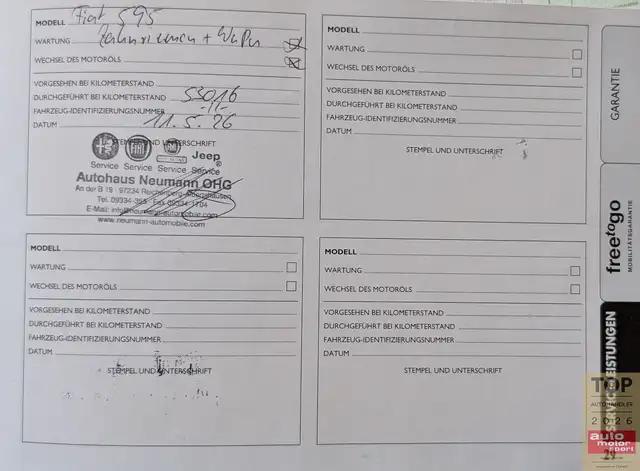 MODELL Fiat 595
WARTUNG Zahnriemen + WaPu
WECHSEL DES MOTORÖLS
VORGESEHEN BEI KILOMETERSTAND
DURCHGEFÜHRT BEI KILOMETERSTAND 53016
FAHRZEUG-IDENTIFIZIERUNGSNUMMER -11-
DATUM 11.5.26
STEMPEL UND UNTERSCHRIFT
Jeep
Service Service Service Service
Autohaus Neumann OHG
An der B 19 · 97234 Reichenberg-
Tel. 09334-
E-Mail: info@neumann-automobile.com
www.neumann-automobile.com
MODELL
WARTUNG
WECHSEL DES MOTORÖLS
VORGESEHEN BEI KILOMETERSTAND
DURCHGEFÜHRT BEI KILOMETERSTAND
FAHRZEUG-IDENTIFIZIERUNGSNUMMER
DATUM
STEMPEL UND UNTERSCHRIFT
MODELL
WARTUNG
WECHSEL DES MOTORÖLS
VORGESEHEN BEI KILOMETERSTAND
DURCHGEFÜHRT BEI KILOMETERSTAND
FAHRZEUG-IDENTIFIZIERUNGSNUMMER
DATUM
STEMPEL UND UNTERSCHRIFT
MODELL
WARTUNG
WECHSEL DES MOTORÖLS
VORGESEHEN BEI KILOMETERSTAND
DURCHGEFÜHRT BEI KILOMETERSTAND
FAHRZEUG-IDENTIFIZIERUNGSNUMMER
DATUM
STEMPEL UND UNTERSCHRIFT
GARANTIE
freetogo
MOBILITÄTSGARANTIE
SERVICELEISTUNGEN
TOP
AUTOHÄNDLER
2026
auto
motor
sport